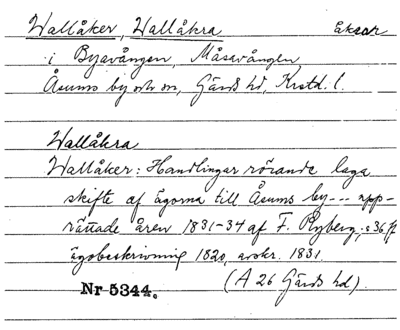 Wallåker, Wallåkra Åkrar
i Byavången, Måsavången
Åsums by och sn, Gärds hd, Kristd. l.
Wallåkra
Wallåker: Handlingar rörande laga
skifte af ägorna till Åsums by --- upp-
rättade åren 1831-34 af F. Ryberg, s 36 ff
ägobeskrivning 1820, avskr. 1831.
(A 26 Gärds hd).
Nr 5344.